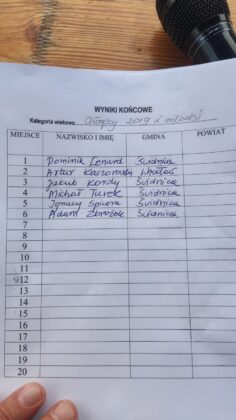 WYNIKI KOŃCOWE
Kategoria wiekowa Chłopcy 2019 i młodsi
MIEJSCE NAZWISKO I IMIĘ GMINA POWIAT
1 Dominik Lenard Świdnica
2 Artur Kaczorowski
3 Jakub Kordy Świdnica
4 Michał Turek Świdnica
5 Ignacy Świdnica
6 Adam Świdnica
7
8
9
10
11
12
13
14
15
16
17
18
19
20